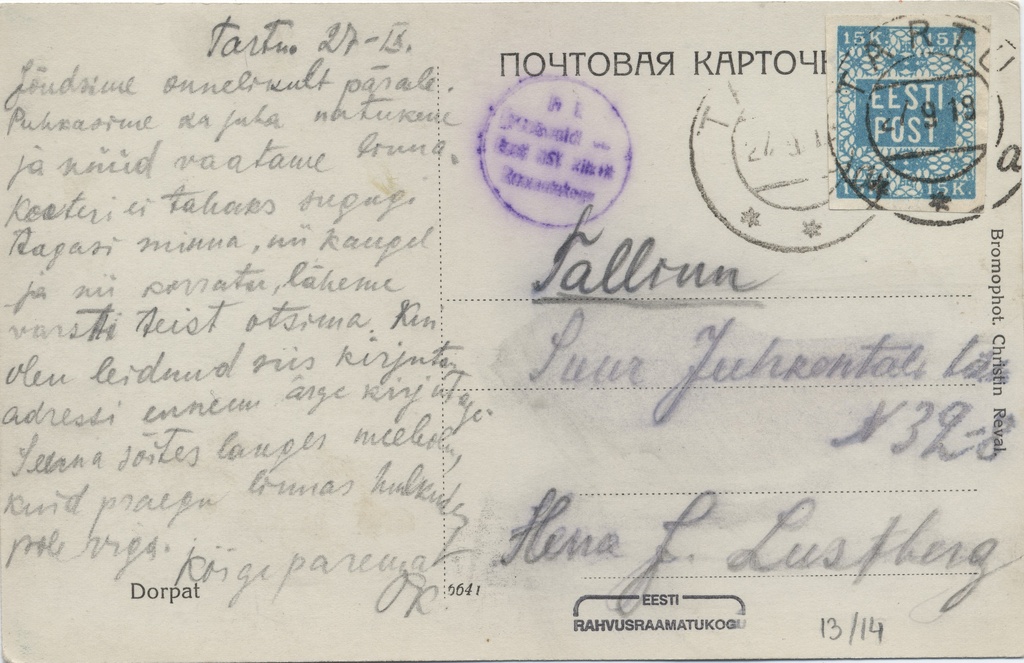 Tartu. 27-IX.
Jõudsime õnnelikult pärale.
Puhkasime ka juba natukene
ja nüüd vaatame linna.
Korteri ei tahaks sugugi
tagasi minna, nii kaugel
ja nii korratu, läheme
varsti teist otsima. Kui
olen leidnud siis kirjutan
adressi ennem ärge kirjutage.
sõites langes meeleolu,
kuid praegu linnas hulkudes
pole viga.
Kõige paremat
Dorpat
6641
ПОЧТОВАЯ КАРТОЧ
15 K. 15 K.
EESTI
POST
15 K. 15 K.
TARTU
27 9 18
a
Tallinn
Suur Juhkentali tän
N 32-8
Herra J. Lustberg
Bromophot. Christin Reval
EESTI
RAHVUSRAAMATUKOGU
13/14